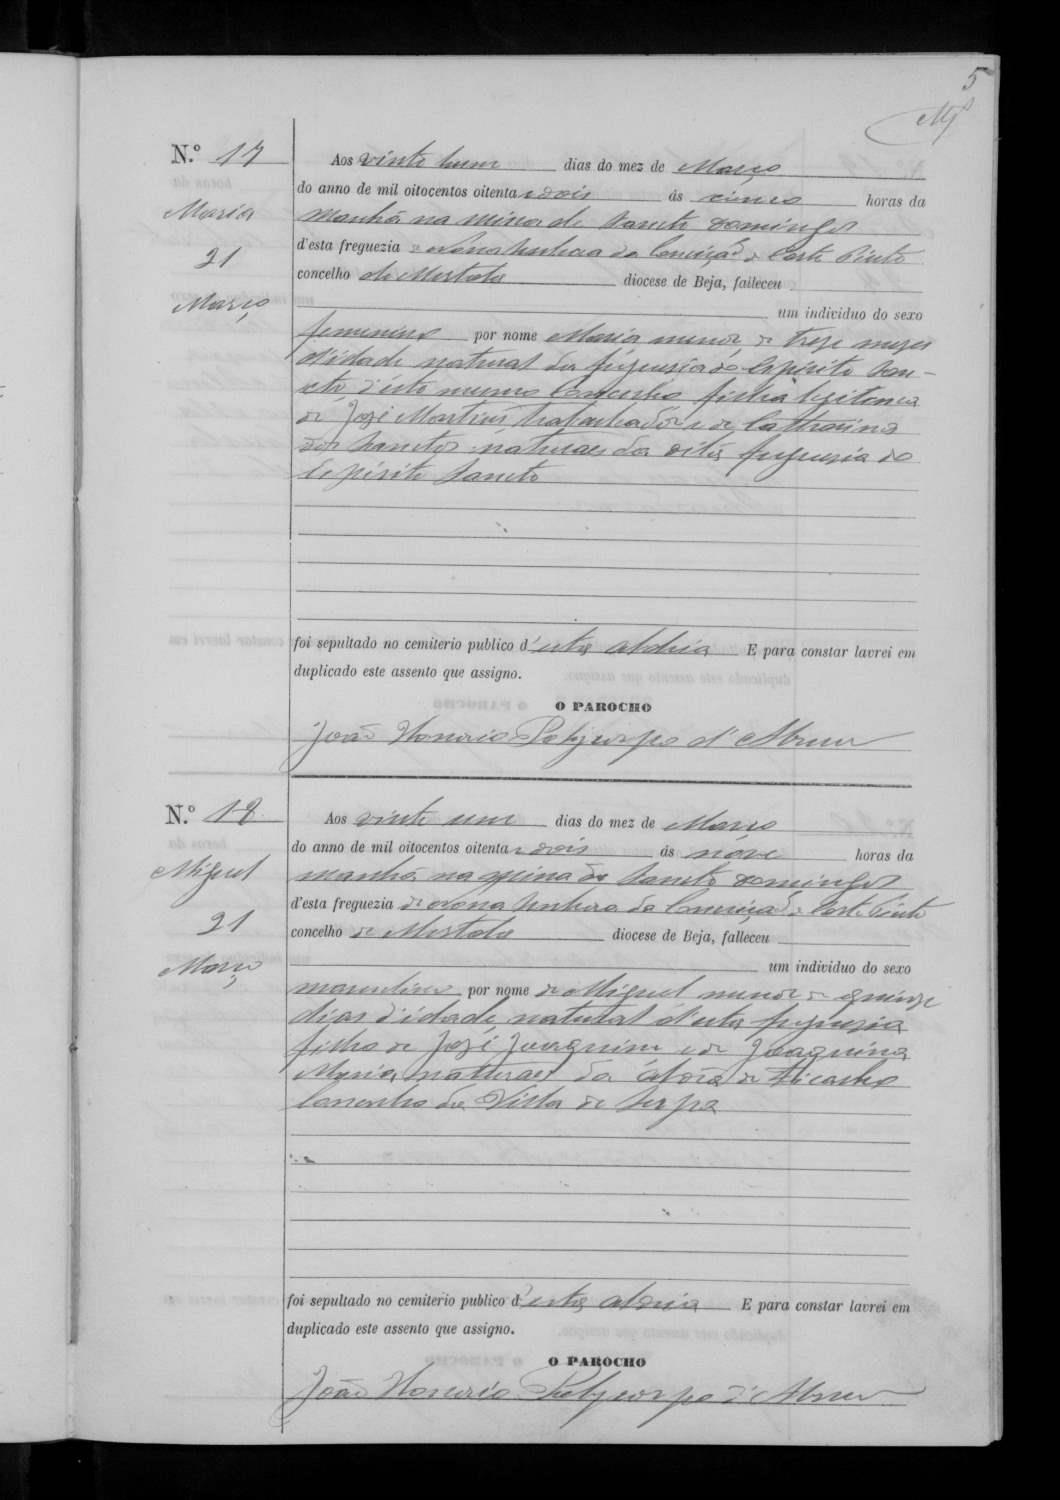 5
N.º 17
Maria
21
Março
Aos vinte hum dias do mez de Março
do anno de mil oitocentos oitenta e dois ás cinco horas da
manhã na mina de Sancto Domingos
d'esta freguezia de Nossa Senhora da Conceição de Corte Pinto
concelho de Mertola diocese de Beja, falleceu
um individuo do sexo
femenino por nome Maria menor de treze mezes
d'idade natural da freguesia do Espirito San-
cto d'este mesmo Concelho filha legitema
de José Martins trabalhador e de Catharina
dos Sanctos naturaes da dita freguesia do
Espirito Sancto
foi sepultado no cemiterio publico d'esta aldeia E para constar lavrei em
duplicado este assento que assigno.
O PAROCHO
João Honorio Polycarpo d'Abreu
N.º 18
Miguel
21
Março
Aos vinte um dias do mez de Março
do anno de mil oitocentos oitenta e dois ás nóve horas da
manhã na mina de Sancto Domingos
d'esta freguezia de Nossa Senhora da Conceição de Corte Pinto
concelho de Mertola diocese de Beja, falleceu
um individuo do sexo
masculino por nome de Miguel menor de quinze
dias d'idade natural d'esta freguesia
filho de José Joaquim e de Joaquina
Maria naturaes da aldeia de Ficalho
Concelho da Villa de Serpa
foi sepultado no cemiterio publico d'esta aldeia E para constar lavrei em
duplicado este assento que assigno.
O PAROCHO
João Honorio Polycarpo d'Abreu